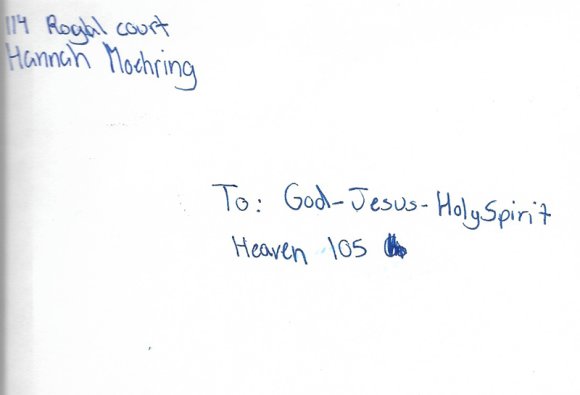 114 Rogbl court
Hannah Moehring
To: God-Jesus-HolySpirit
Heaven 105